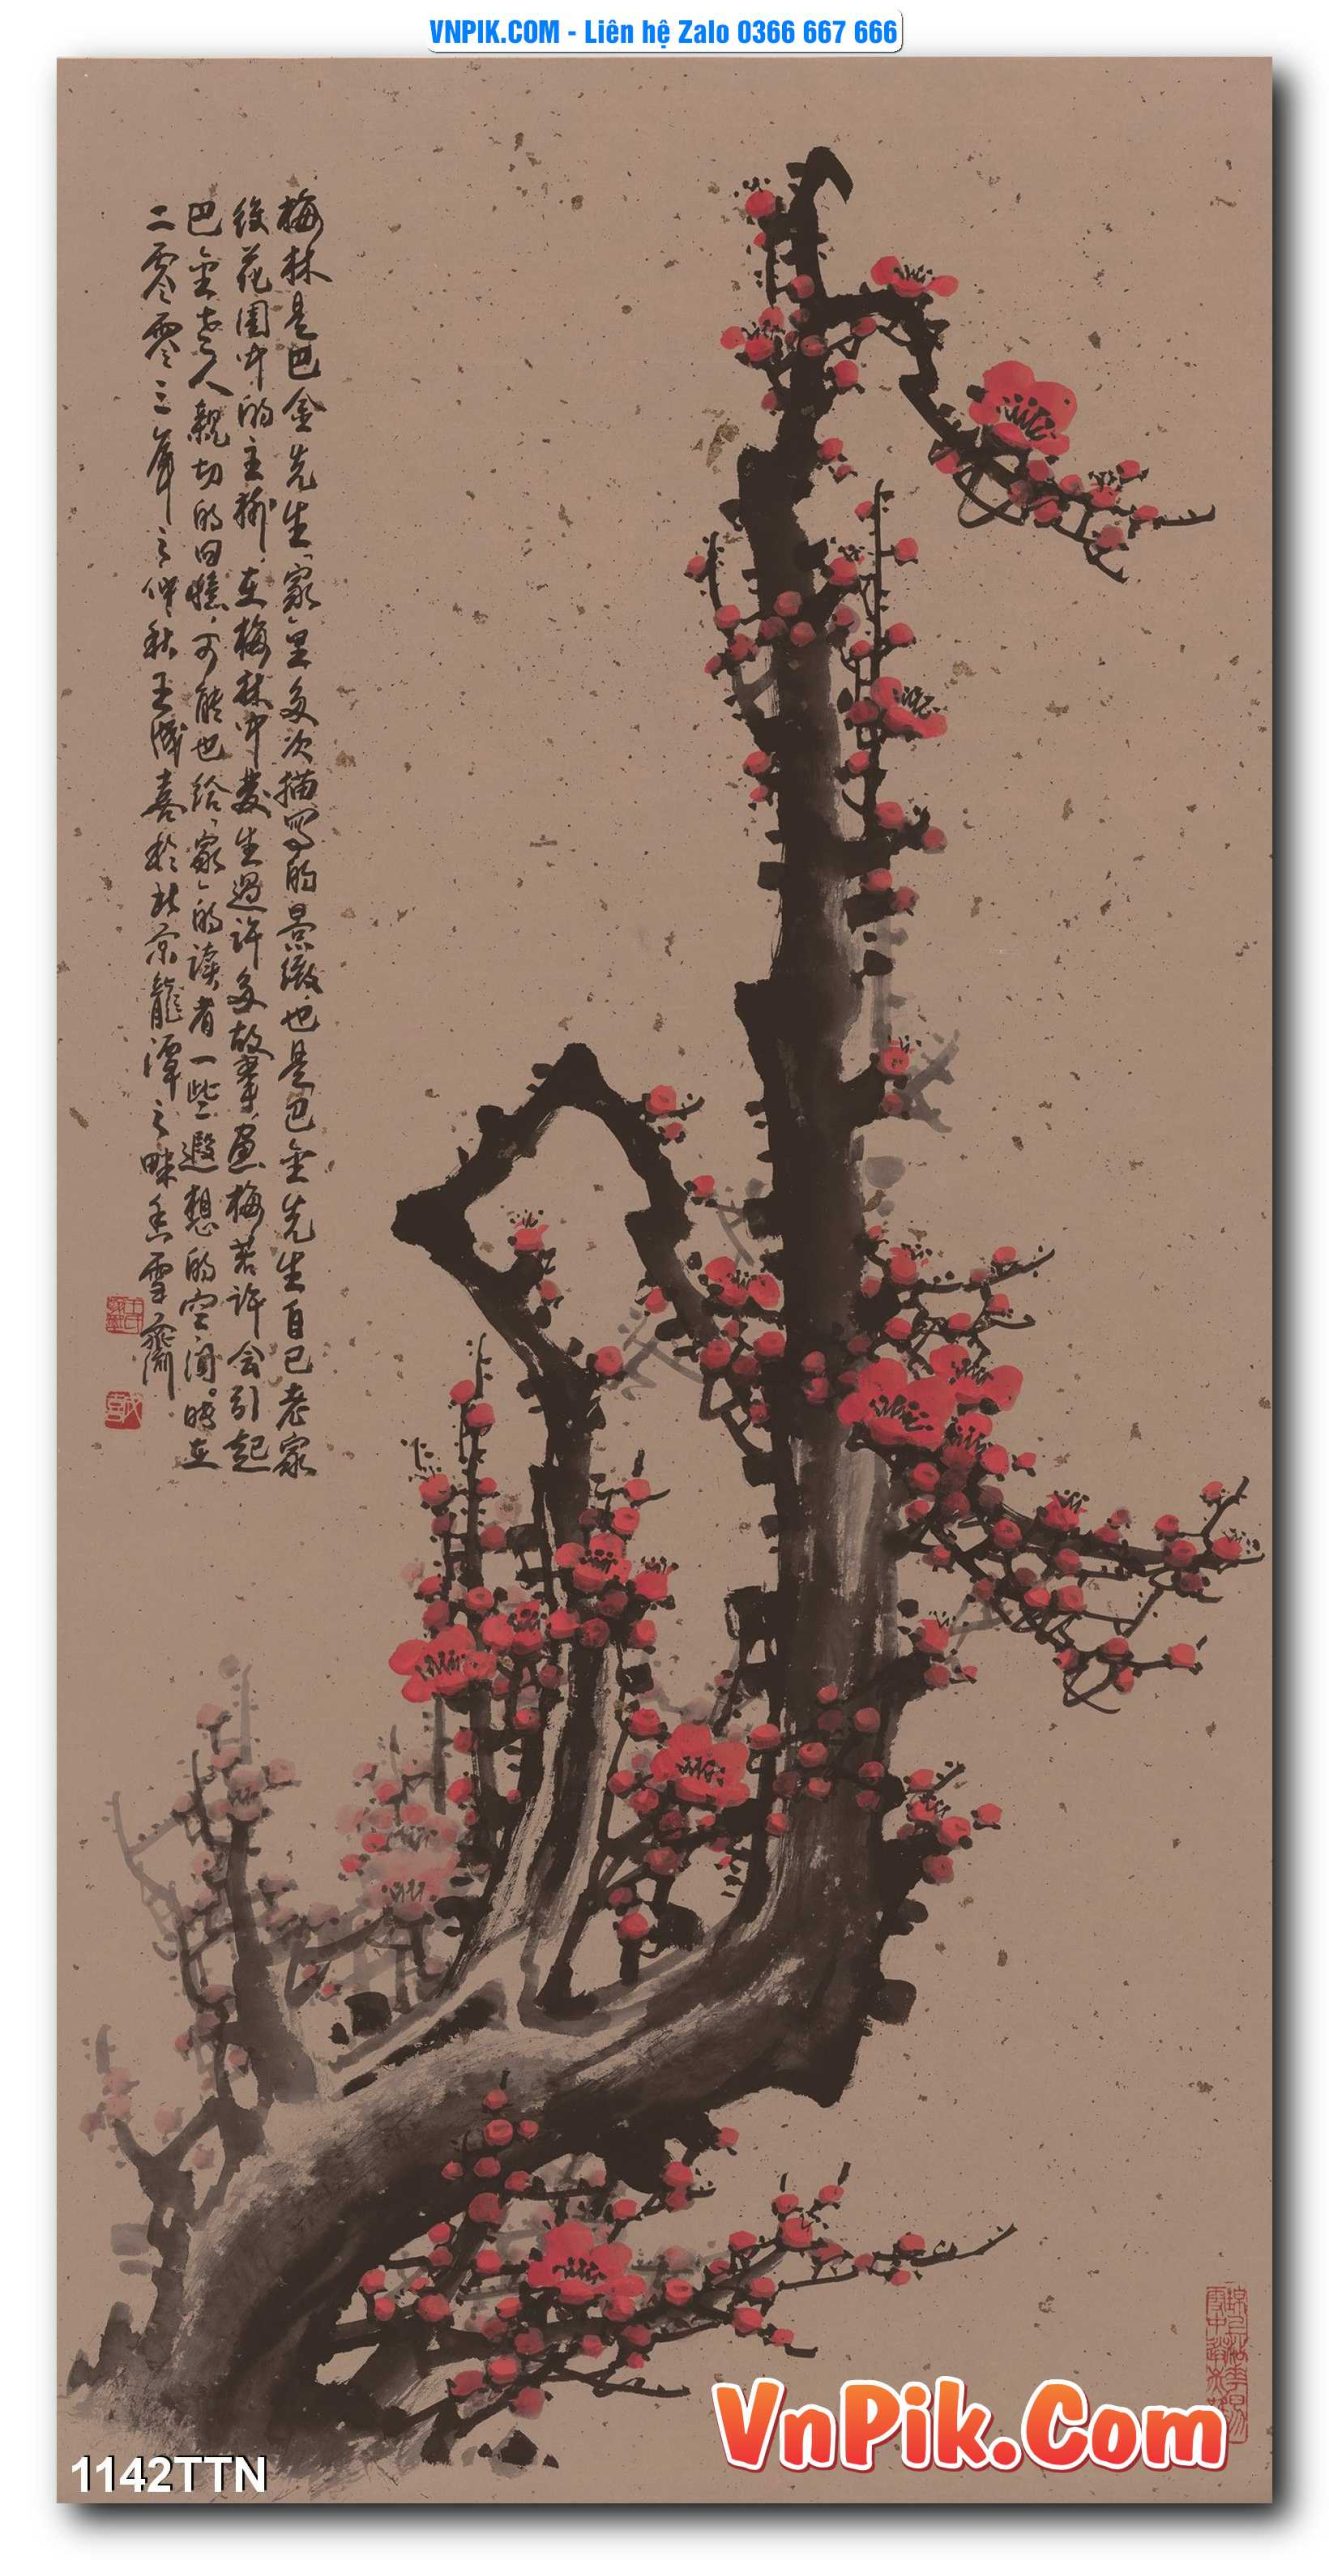 VNPIK.COM - Liên hệ Zalo 0366 667 666
梅林是巴金先生家里多次描写的景緻也是巴金先生自己老家
後花园中的主摊在梅林中发生过许多故事画梅若许会引起
巴金老人親切的回憶可能也给家的读者一些遐想的空间時在
二零零三年之仲秋王成喜於北京龍潭之畔香雪齋
VnPik.Com
1142TTN